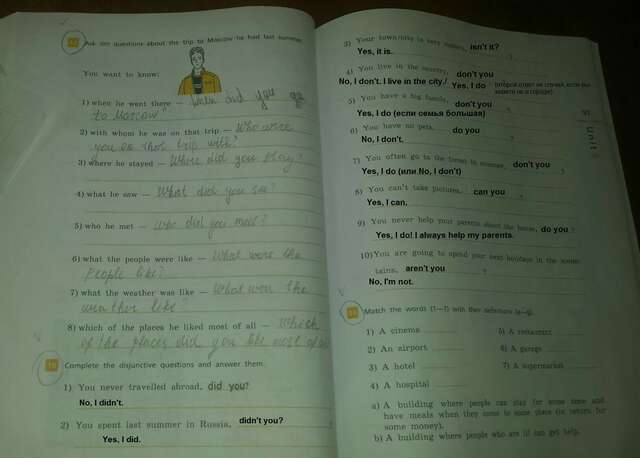 Ask him questions about the trip to Moscow he had last summer.
You want to know:
1) when he went there — When did you go
to Moscow?
2) with whom he was on that trip — Who were
you on that trip with?
3) where he stayed — Where did you stay?
4) what he saw — What did you see?
5) who he met — Who did you meet?
6) what the people were like — What were the
people like?
7) what the weather was like — What was the
weather like?
8) which of the places he liked most of all — Which
of the places did you like most of all
Complete the disjunctive questions and answer them.
1) You never travelled abroad, did you?
No, I didn't.
2) You spent last summer in Russia, didn't you?
Yes, I did.
3) Your town/city is very modern, isn't it?
Yes, it is.
4) You live in the country, don't you
No, I don't. I live in the city./ Yes, I do (второй ответ не случай, если вы
живете не в городе)
5) You have a big family, don't you?
Yes, I do (если семья большая)
6) You have no pets, do you ?
No, I don't.
7) You often go to the forest in summer, don't you ?
Yes, I do (или No, I don't)
8) You can't take pictures, can you ?
Yes, I can.
9) You never help your parents about the house, do you ?
Yes, I do! I always help my parents.
10) You are going to spend your next holidays in the moun-
tains, aren't you ?
No, I'm not.
Unit
Match the words (1—7) with their definitions (a—g).
1) A cinema
2) An airport
3) A hotel
4) A hospital
5) A restaurant
6) A garage
7) A supermarket
a) A building where people can stay for some time and
have meals when they come to some place (in return for
some money).
b) A building where people who are ill can get help.